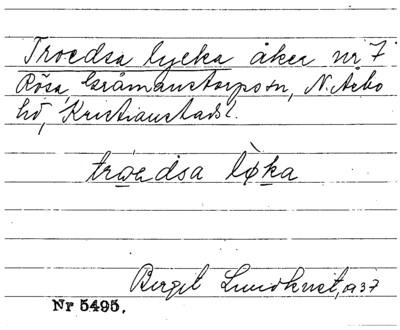 Troedsa lycka åker nr 7
Rösa, Gråmanstorpssn, N. Åsbo
hd, Kristianstads l.
trœdsa lø̀ka
Birgit Lundkvist, 1937
Nr 5495.